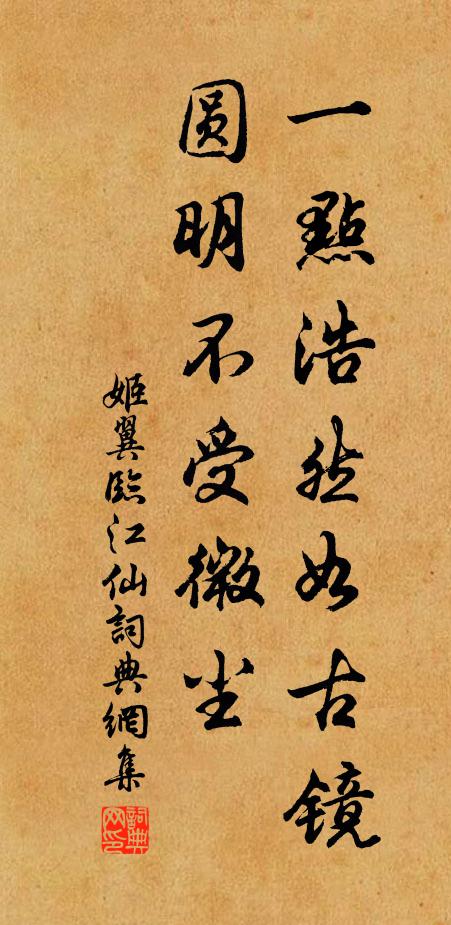 一點浩然如古镜
圆明不受微尘
姬翼臨江仙詞典網集
詞典网印